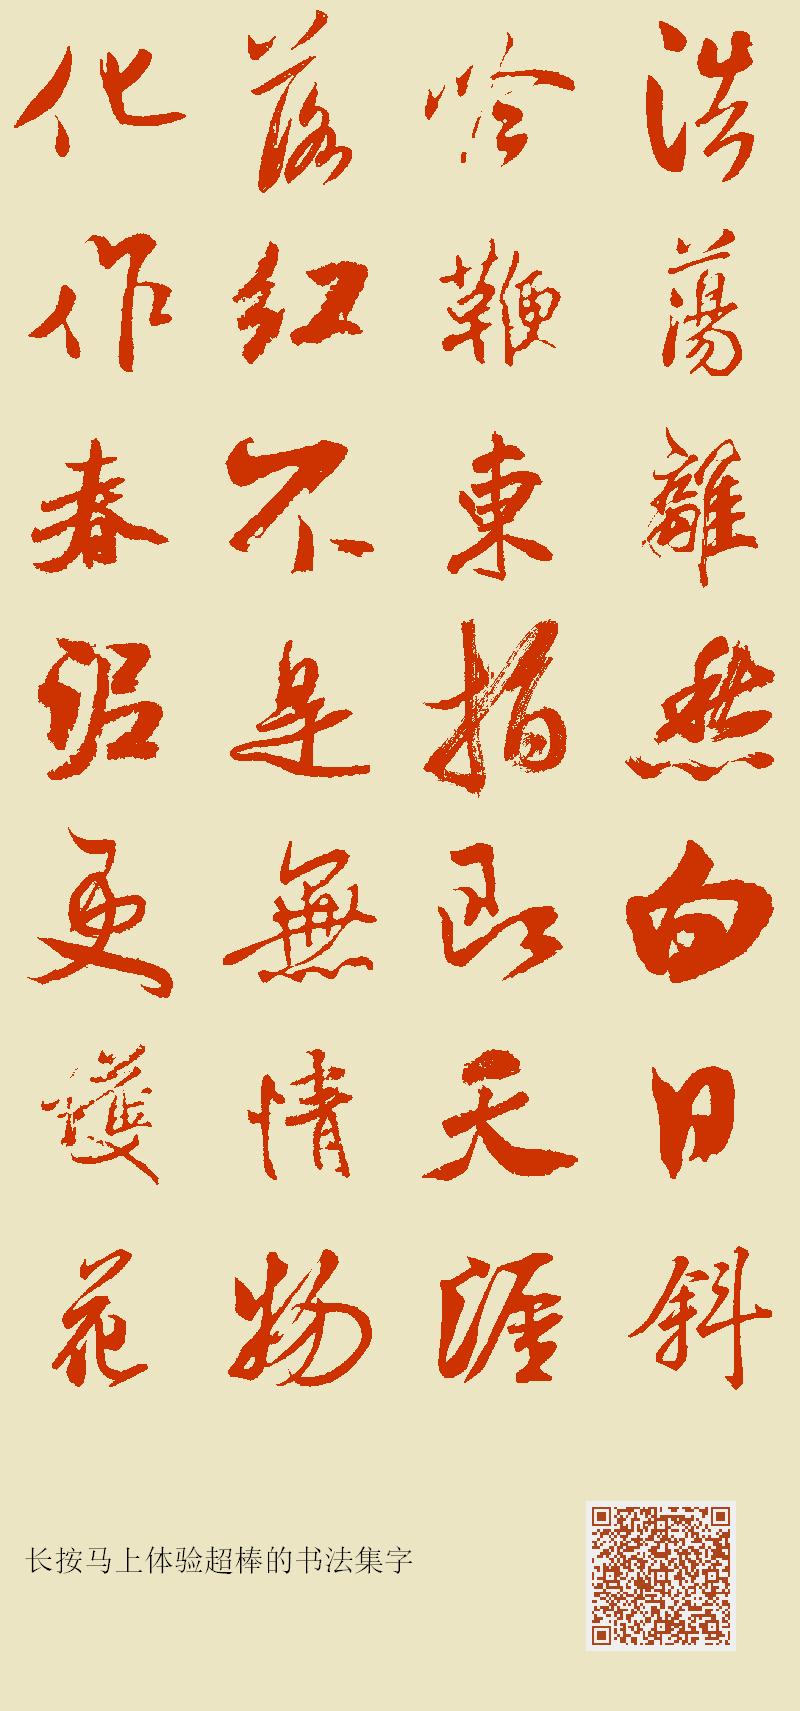 浩蕩離愁白日斜
吟鞭東指即天涯
落紅不是無情物
化作春泥更護花
长按马上体验超棒的书法集字